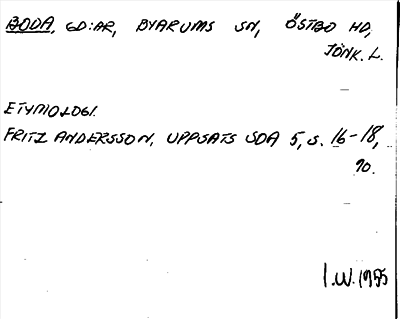 BODA, GD:AR, BYARUMS SN, ÖSTBO HD,
JÖNK. L.
ETYMOLOGI.
FRITZ ANDERSSON, UPPSATS SOA 5, S. 16-18,
90.
I.W. 1955